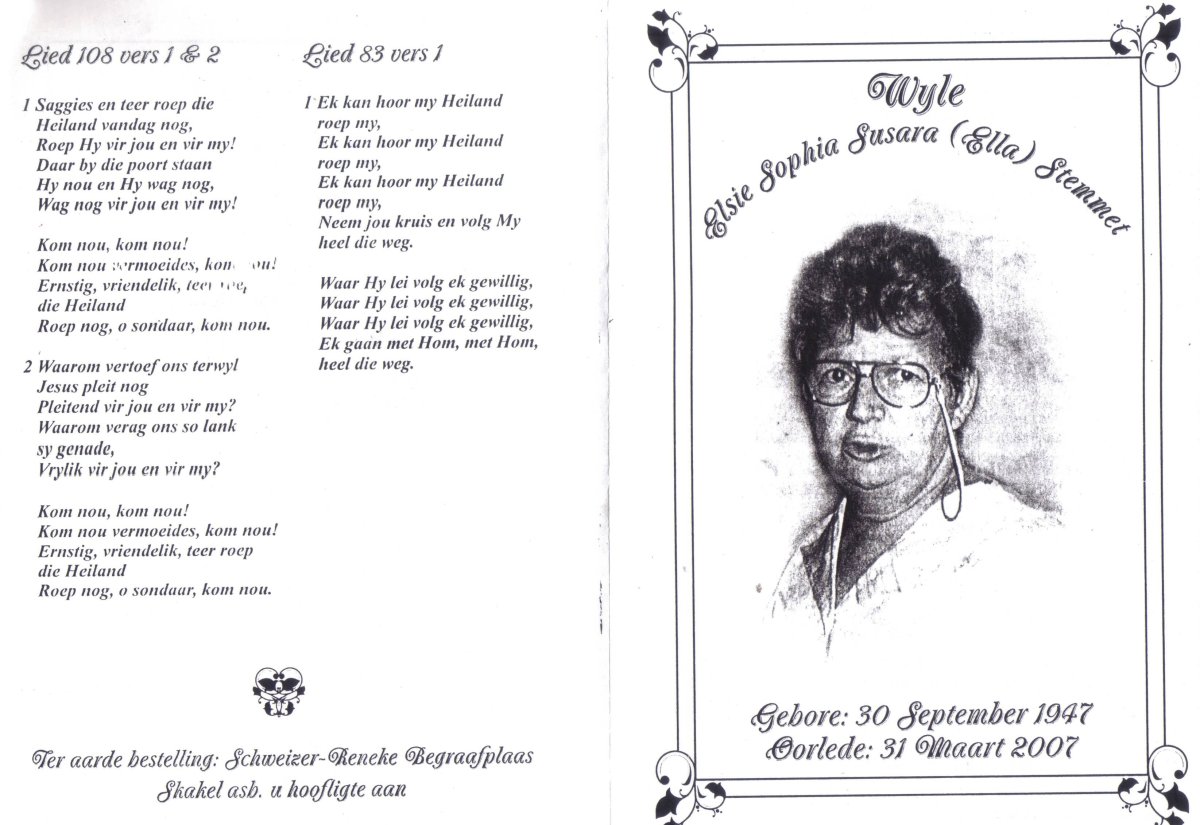 Lied 108 vers 1 & 2
1 Saggies en teer roep die
Heiland vandag nog,
Roep Hy vir jou en vir my!
Daar by die poort staan
Hy nou en Hy wag nog,
Wag nog vir jou en vir my!
Kom nou, kom nou!
Kom nou vermoeides, kom nou!
Ernstig, vriendelik, teer roep
die Heiland
Roep nog, o sondaar, kom nou.
2 Waarom vertoef ons terwyl
Jesus pleit nog
Pleitend vir jou en vir my?
Waarom verag ons so lank
sy genade,
Vrylik vir jou en vir my?
Kom nou, kom nou!
Kom nou vermoeides, kom nou!
Ernstig, vriendelik, teer roep
die Heiland
Roep nog, o sondaar, kom nou.
Lied 83 vers 1
1 Ek kan hoor my Heiland
roep my,
Ek kan hoor my Heiland
roep my,
Ek kan hoor my Heiland
roep my,
Neem jou kruis en volg My
heel die weg.
Waar Hy lei volg ek gewillig,
Waar Hy lei volg ek gewillig,
Waar Hy lei volg ek gewillig,
Ek gaan met Hom, met Hom,
heel die weg.
Ter aarde bestelling: Schweizer-Reneke Begraafplaas
Skakel asb. u hoofligte aan
Wyle
Elsie Sophia Susara (Ella) Stemmet
Gebore: 30 September 1947
Oorlede: 31 Maart 2007